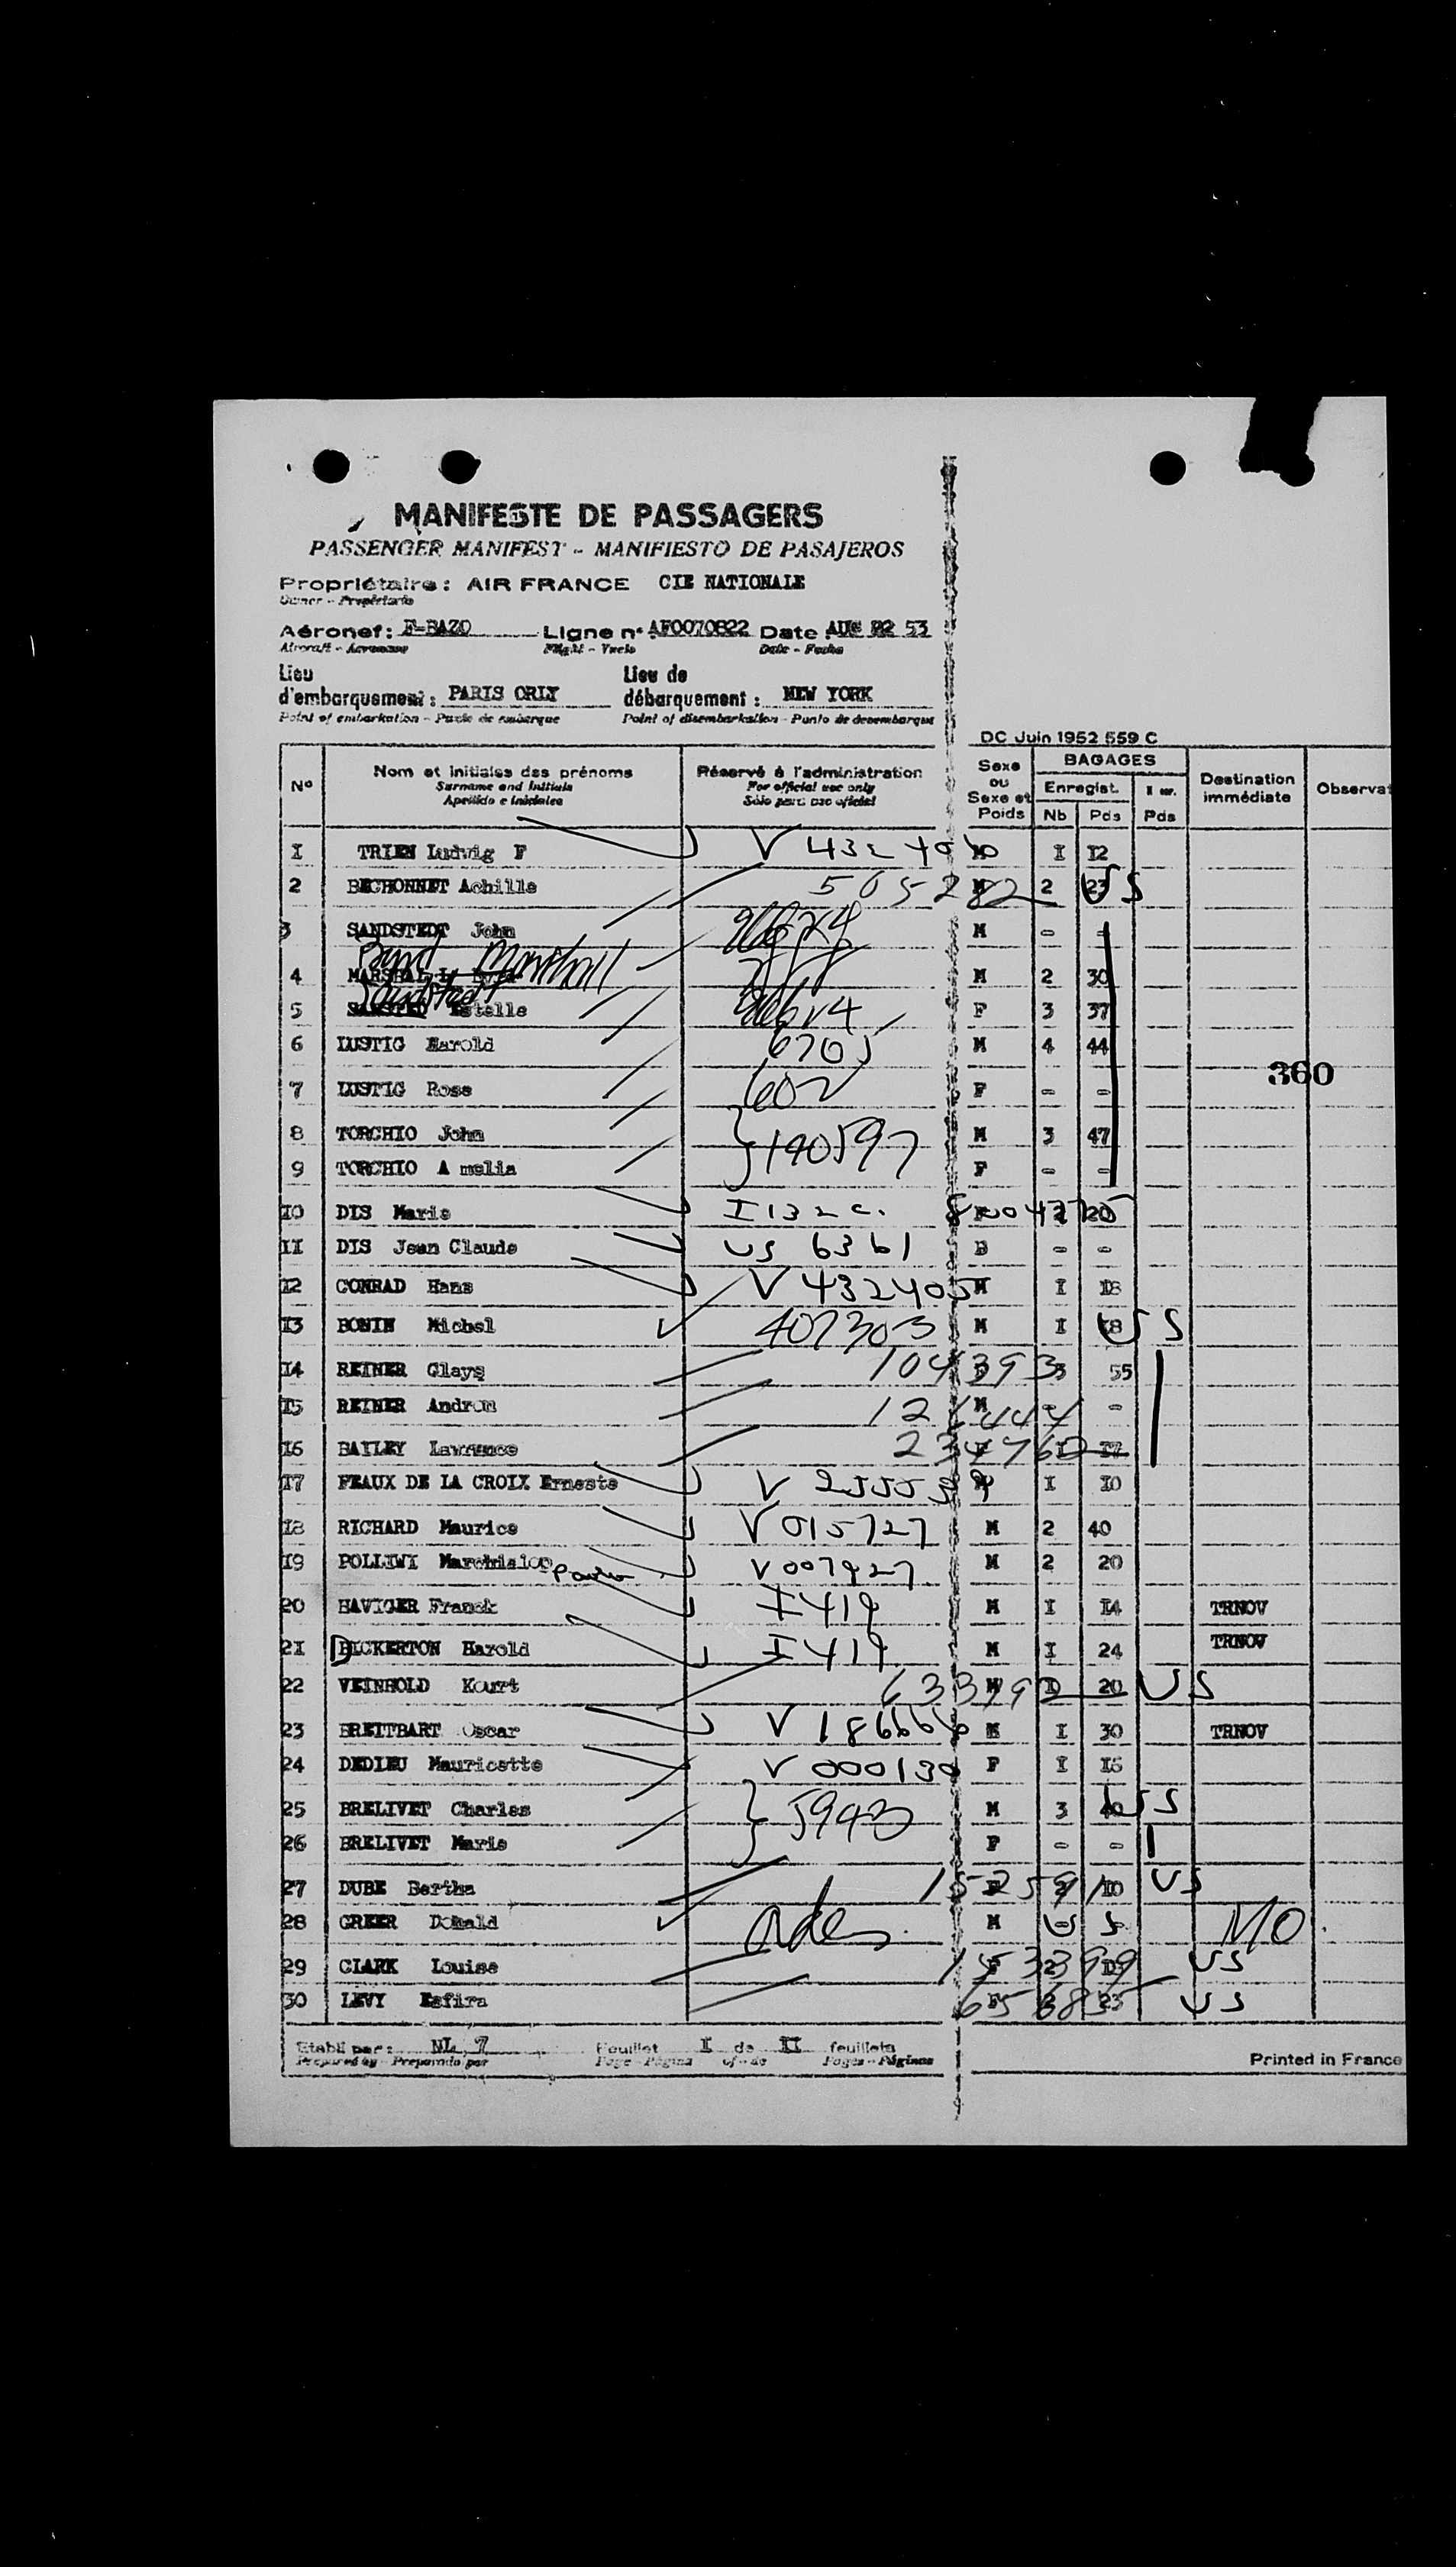 MANIFESTE DE PASSAGERS
PASSENGER MANIFEST - MANIFIESTO DE PASAJEROS
Propriétaire : AIR FRANCE CIE NATIONALE
Owner - Propietario
Aéronef : F-BAZO Ligne n° AF0070822 Date : AUG 22 53
Aircraft - Aeronave Flight - Vuelo Date - Fecha
Lieu d'embarquement : PARIS ORLY Lieu de débarquement : NEW YORK
Point of embarkation - Punto de embarque Point of disembarkation - Punto de desembarque
DC Juin 1952 559 C
N° Nom et initiales des prénoms Réservé à l'administration Sexe ou Sexe et Poids BAGAGES Destination immédiate Observat
Surname and Initials For official use only Enregist.
Apellido e Iniciales Sólo para uso oficial Nb Pds Pds
I TRIEN Ludwig F V I I2
2 BECHONNET Achille 505282 M 2 23 US
3 SANDSTEDT John M - -
4 MARSHALL Marshall M 2 30
5 Estelle F 3 37
6 LUSTIG Harold 6705 M 4 44
360
7 LUSTIG Rose 602 F - -
8 TORCHIO John M 3 47
190597
9 TORCHIO A melia F - -
I0 DIS Marie I 132 c. 20
II DIS Jean Claude US 6361 - -
I2 CONRAD Hans V 432405 M I I8
I3 BONIN Michel 407303 M I I8 US
I4 REINER Glays 104393 3 55
I5 REINER Andrew M - -
I6 BAILEY Lawrence 234760 I I7
I7 FEAUX DE LA CROIX Erneste V I I0
I8 RICHARD Maurice V 015727 M 2 40
I9 POLLIWI V 007927 M 2 20
20 HAVIGER Franck I 419 M I I4 TRNOV
2I BICKERTON Harold I 419 M I 24 TRNOV
22 VEINHOLD Kourt 633792 M I 20 US
23 BREITBART Oscar V M I 30 TRNOV
24 DEDIEU Mauricette V 000130 F I I5
25 BRELIVET Charles M 3 40 US
5943
26 BRELIVET Marie F - -
27 DUBE Bertha I0 US
28 GREER Donald M US
29 CLARK Louise 2 US
30 LEVY Esfira F 23 US
Etabli par : NL 7 Feuillet I de II feuillets
Prepared by - Preparado por Page - Página of - de Pages - Páginas
Printed in France